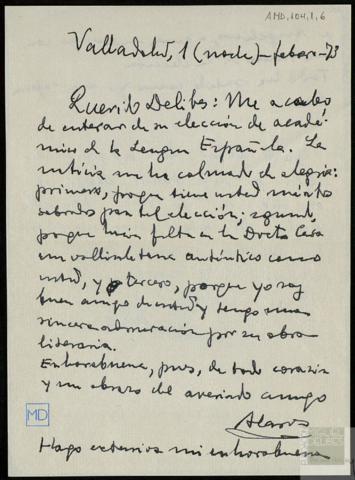 AMD, 104, 1, 6
Valladolid, 1 (noche) - febrero - 73
Querido Delibes: Me acabo
de enterar de su elección de acadé-
mico de la Lengua Española. La
noticia me ha colmado de alegría:
primero, porque tiene usted méritos
sobrados para tal elección; segundo,
porque hacía falta en la Docta Casa
un vallisoletano auténtico como
usted, y tercero, porque yo soy
buen amigo de usted y tengo una
sincera admiración por su obra
literaria.
Enhorabuena, pues, de todo corazón
y un abrazo del amigo
Alarcos
MD
Hago extensiva mi enhorabuena